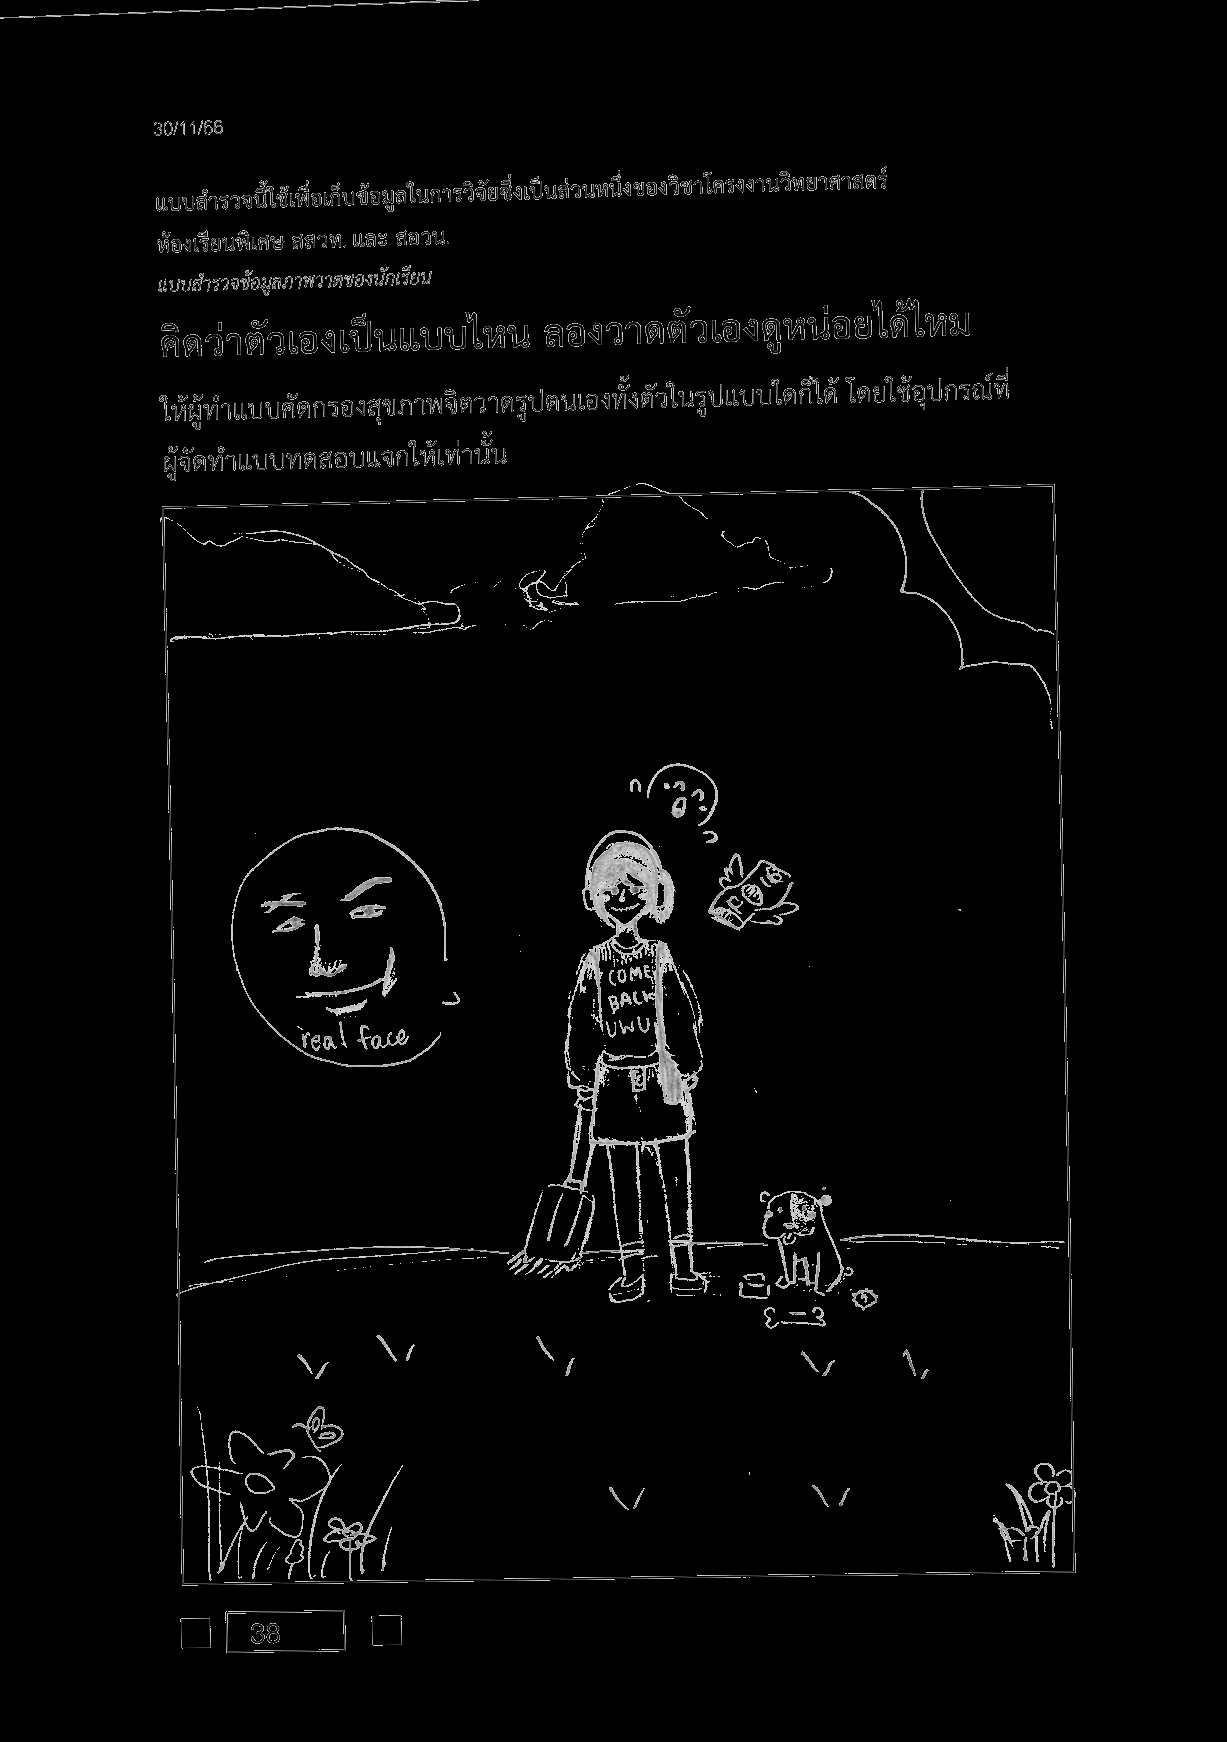 30/11/66
แบบสำรวจนี้ใช้เพื่อเก็บข้อมูลในการวิจัยซึ่งเป็นส่วนหนึ่งของวิชาโครงงานวิทยาศาสตร์
ห้องเรียนพิเศษ สสวท. และ สอวน.
แบบสำรวจข้อมูลภาพวาดของนักเรียน
คิดว่าตัวเองเป็นแบบไหน ลองวาดตัวเองดูหน่อยได้ไหม
ให้ผู้ทำแบบคัดกรองสุขภาพจิตวาดรูปตนเองทั้งตัวในรูปแบบใดก็ได้ โดยใช้อุปกรณ์ที่
ผู้จัดทำแบบทดสอบแจกให้เท่านั้น
COME
BACK
UWU
real face
38